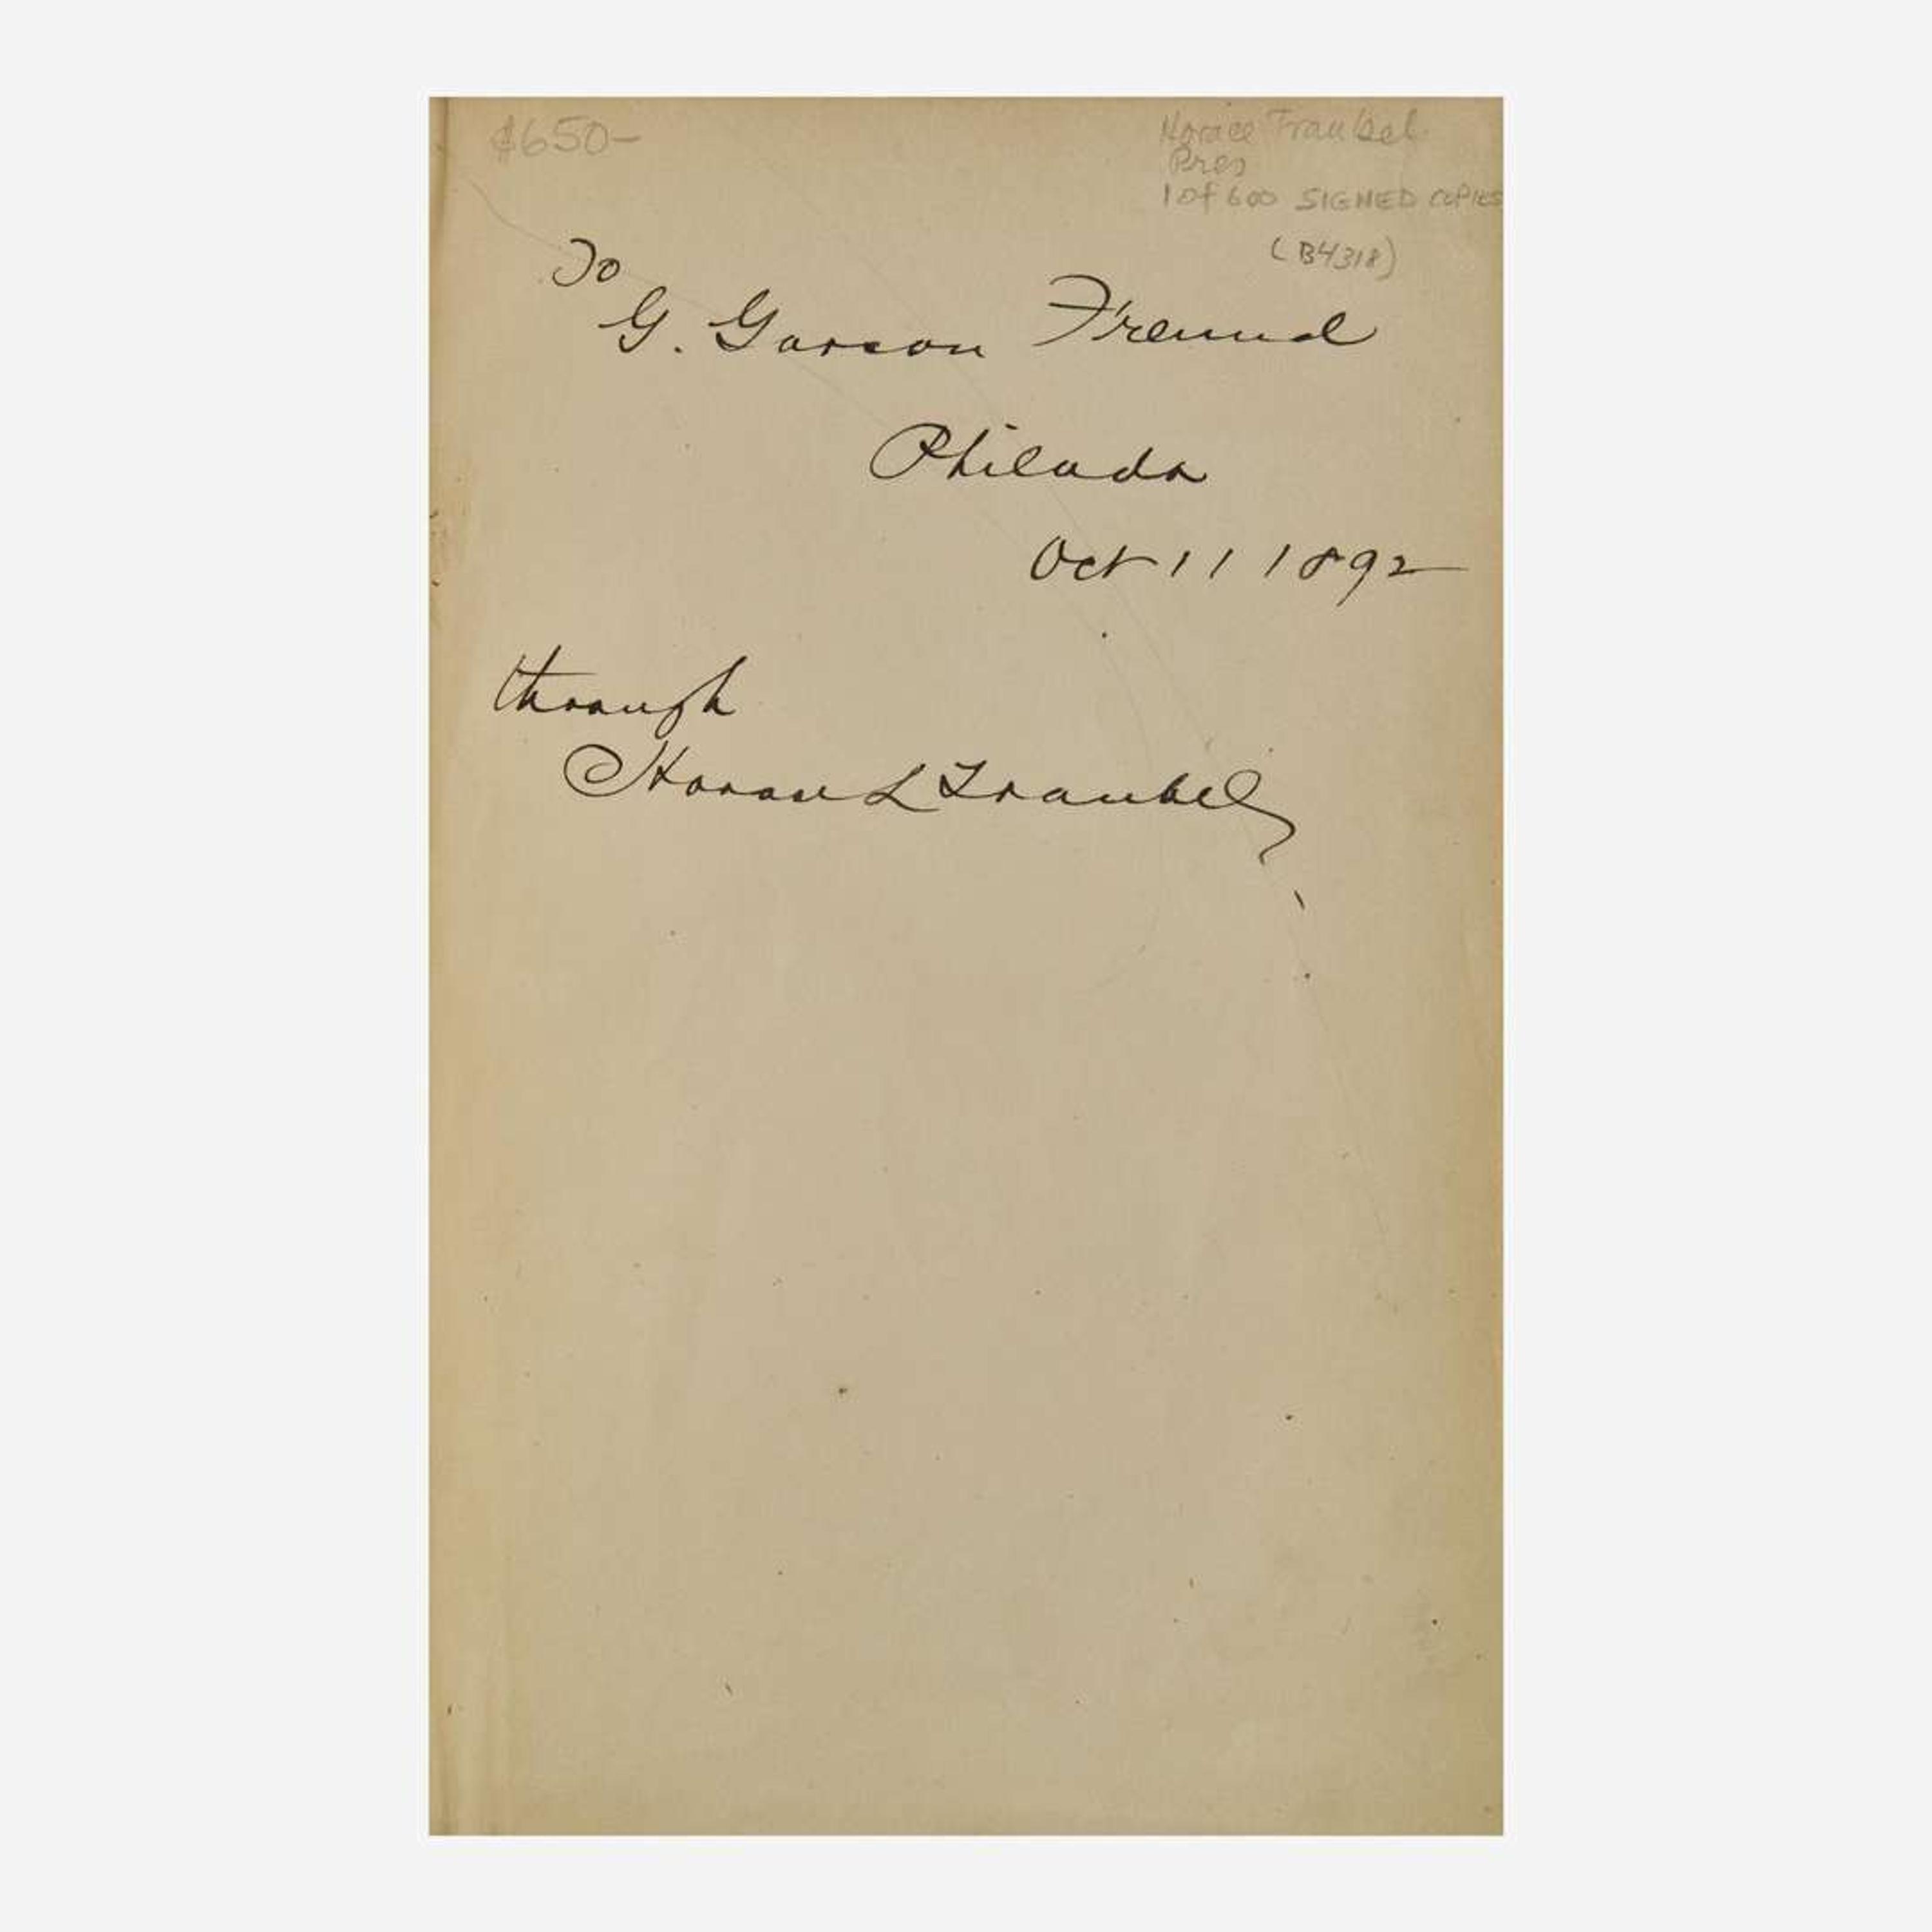 $650-
Horace Traubel
Pres
1 of 600 SIGNED COPIES
(B4318)
To
G. Garson Freund
Philada
Oct 11 1892
through
Horace L Traubel